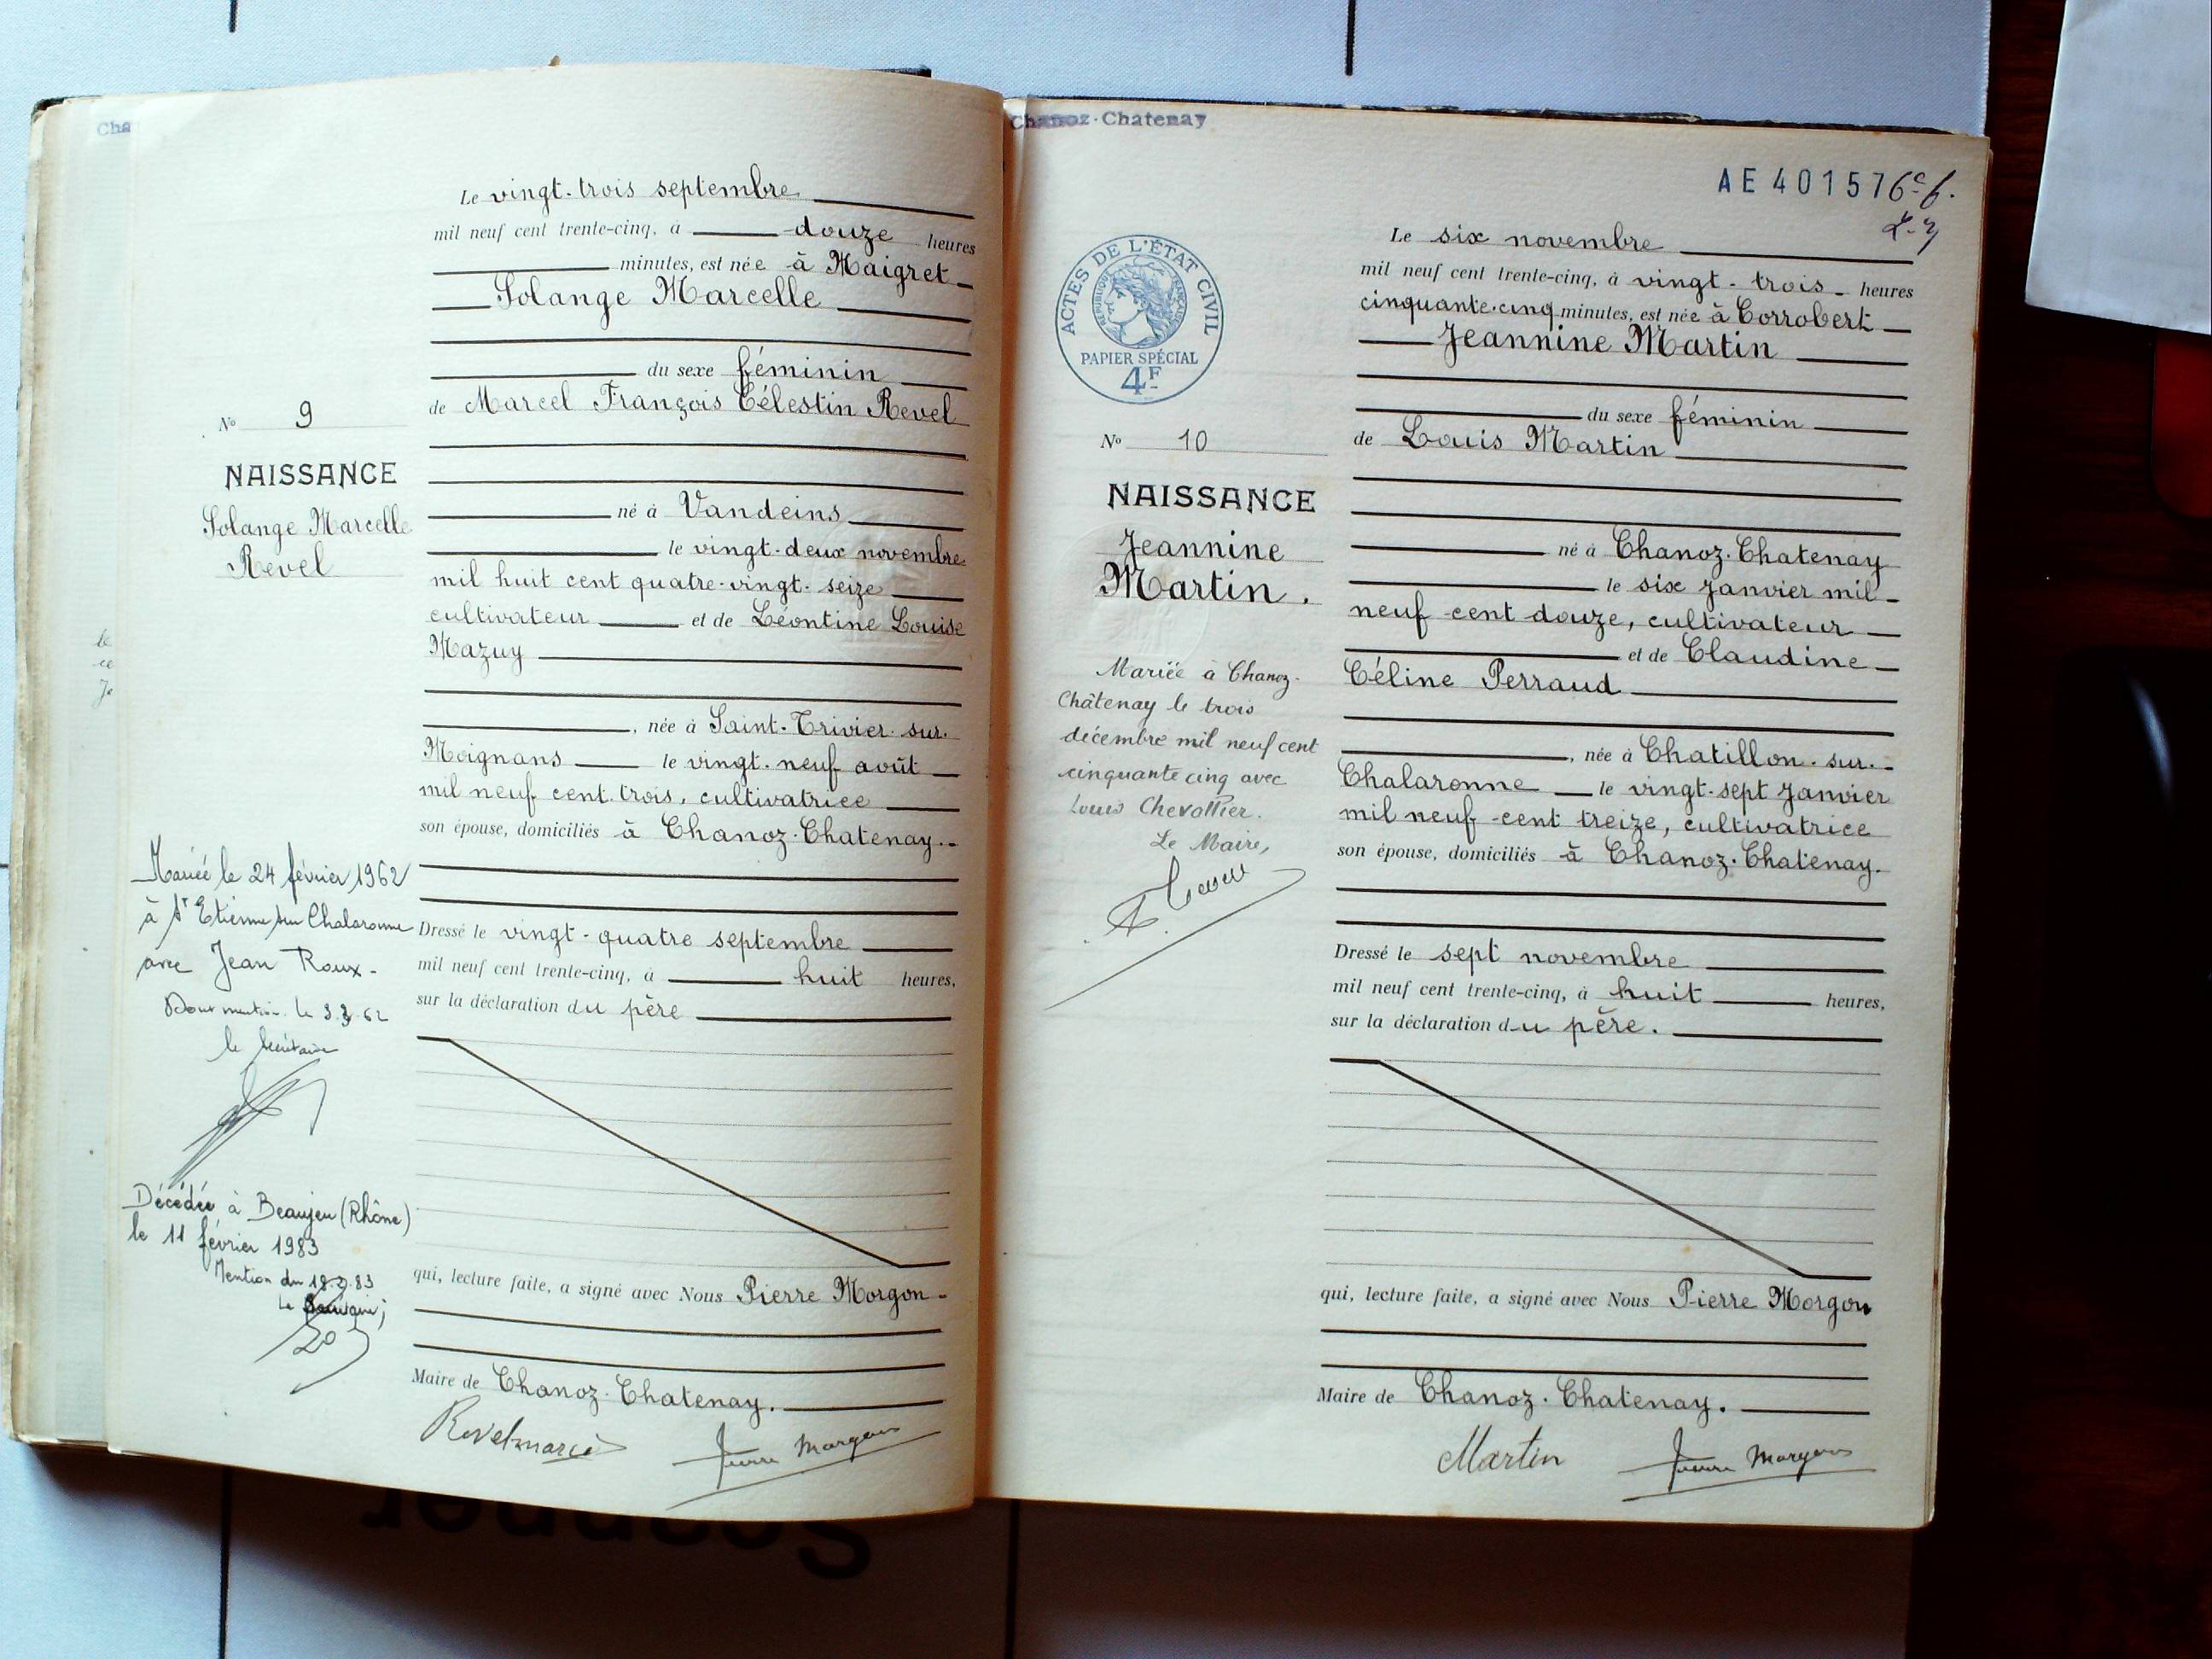 Cha
Le vingt-trois septembre
mil neuf cent trente-cinq, à douze heures
minutes, est née à Maigret
Solange Marcelle
du sexe féminin
de Marcel François Célestin Revel
né à Vandeins
le vingt-deux novembre
mil huit cent quatre-vingt-seize
cultivateur et de Léontine Louise
Mazuy
, née à Saint-Trivier-sur-
Moignans le vingt-neuf août
mil neuf cent trois, cultivatrice
son épouse, domiciliés à Chanoz-Chatenay.
Dressé le vingt-quatre septembre
mil neuf cent trente-cinq, à huit heures,
sur la déclaration du père
qui, lecture faite, a signé avec Nous Pierre Morgon
Maire de Chanoz-Chatenay.
Revel marcel
Pierre Morgon
No 9
NAISSANCE
Solange Marcelle
Revel
le
ce
Je
Mariée le 24 février 1962
à St Etienne sur Chalaronne
avec Jean Roux
Dont mention le 3.3.62
le Secrétaire
Décédée à Beaujeu (Rhône)
le 11 février 1983
Mention du 18.2.83
Le
Chanoz-Chatenay
AE 401576
Le six novembre
mil neuf cent trente-cinq, à vingt-trois heures
cinquante-cinq minutes, est née à Corrobert
Jeannine Martin
du sexe féminin
de Louis Martin
né à Chanoz-Chatenay
le six janvier mil
neuf cent douze, cultivateur
et de Claudine
Céline Perraud
, née à Chatillon-sur-
Chalaronne le vingt-sept janvier
mil neuf cent treize, cultivatrice
son épouse, domiciliés à Chanoz-Chatenay.
Dressé le sept novembre
mil neuf cent trente-cinq, à huit heures,
sur la déclaration du père.
qui, lecture faite, a signé avec Nous Pierre Morgon
Maire de Chanoz-Chatenay.
Martin
Pierre Morgon
ACTES DE L'ÉTAT CIVIL
RÉPUBLIQUE FRANÇAISE
PAPIER SPÉCIAL
4F
No 10
NAISSANCE
Jeannine
Martin.
Mariée à Chanoz-
Châtenay le trois
décembre mil neuf cent
cinquante cinq avec
Louis Chevallier.
Le Maire,